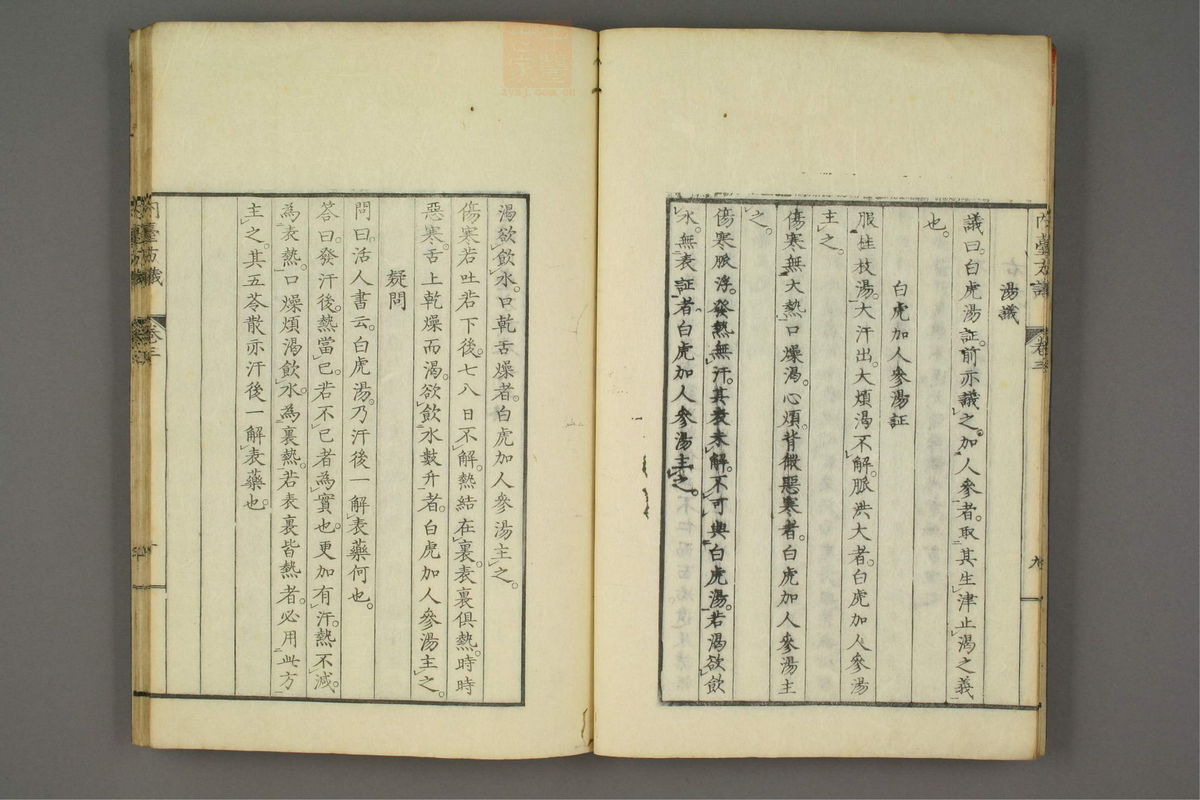 內臺方議 卷三
湯議
議曰。白虎湯証。前亦議之。加人參者。取其生津止渴之義
也。
白虎加人參湯証
服桂枝湯。大汗出。大煩渴不解。脈洪大者。白虎加人參湯
主之。
傷寒無大熱。口燥渴。心煩。背微惡寒者。白虎加人參湯主
之。
傷寒脈浮。發熱無汗。其表未解。不可與白虎湯。若渴欲飲
水。無表証者。白虎加人參湯主之。
渴欲飲水。口乾舌燥者。白虎加人參湯主之。
傷寒若吐若下後。七八日不解。熱結在裏。表裏俱熱。時時
惡寒。舌上乾燥而渴。欲飲水數升者。白虎加人參湯主之。
疑問
問曰。活人書云。白虎湯。乃汗後一解表藥何也。
答曰。發汗後。熱當已。若不已者為實也。更加有汗。熱不減。
為表熱。口燥煩渴飲水。為裏熱。若表裏皆熱者。必用此方
主之。其五苓散亦汗後一解表藥也。
內臺方議 卷三